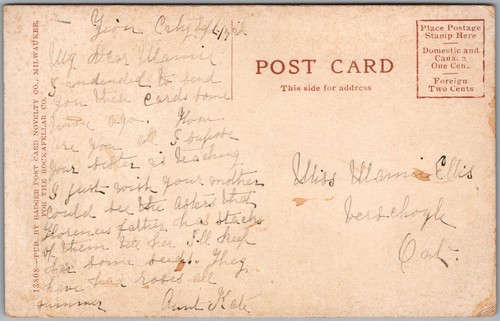 My Dear Mamie
I intended to send
you this card some
time ago. How
are you all I supose
your sister is teaching
I just wish your mother
could see the asters that
Florences father has stacks
of them tell her I'll keep
her some seeds. They
have had roses all
summer Aunt Kate
POST CARD
This side for address
Place Postage
Stamp Here
Domestic and
Canada
One Cen
Foreign
Two Cents
Miss Mamie Ellis
Verschoyle
Ont.
13808—PUB. BY BADGER POST CARD NOVELTY CO., MILWAUKEE,
FOR THE ROCKAFELLAR CO.